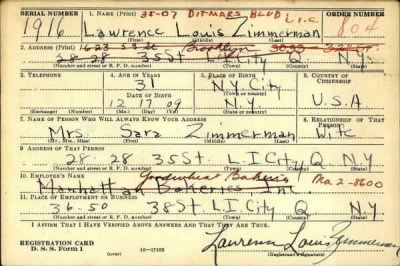 SERIAL NUMBER 1. NAME (Print) 35-07 DITMARS BLVD L.I.C. ORDER NUMBER
1916 Lawrence Louis Zimmerman 804
(First) (Middle) (Last)
2. ADDRESS (Print) 1623 53 St Brooklyn
28-28 35 St L.I. City Q N.Y.
(Number and street or R. F. D. number) (Town) (County) (State)
3. TELEPHONE 4. AGE IN YEARS 5. PLACE OF BIRTH 6. COUNTRY OF CITIZENSHIP
31 N.Y. City
(Town or county)
DATE OF BIRTH
12 17 09 N.Y. U.S.A
(Exchange) (Number) (Mo.) (Day) (Yr.) (State or country)
7. NAME OF PERSON WHO WILL ALWAYS KNOW YOUR ADDRESS 8. RELATIONSHIP OF THAT PERSON
Mrs. Sara Zimmerman Wife
(Mr., Mrs., Miss) (First) (Middle) (Last)
9. ADDRESS OF THAT PERSON
28-28 35 St L.I City Q N.Y
(Number and street or R. F. D. number) (Town) (County) (State)
10. EMPLOYER'S NAME Goodwheat Bakeries Ra 2-8600
Manhattan Bakeries Inc
11. PLACE OF EMPLOYMENT OR BUSINESS
36-50 38 St L.I. City Q N.Y
(Number and street or R. F. D. number) (Town) (County) (State)
I AFFIRM THAT I HAVE VERIFIED ABOVE ANSWERS AND THAT THEY ARE TRUE.
REGISTRATION CARD
D. S. S. Form 1 (over) 16-17105 Lawrence Louis Zimmerman
(Registrant's signature)